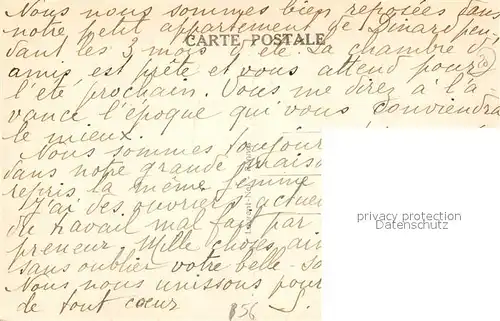 Nous nous sommes bien reposées dans
notre petit appartement de Dinard pen-
CARTE POSTALE
dant les 3 mois d'été. La chambre d'
amis est prête et vous attend pour
l'été prochain. Vous me direz à l'a-
vance l'époque qui vous conviendra
le mieux.
Nous sommes toujour
dans notre grande maiso
repris la même femme
J'ai des ouvriers actue
du travail mal fait par
preneur. Mille choses ai
sans oublier votre belle-so
Nous nous unissons pour
de tout cœur
S.
privacy protection
Datenschutz
156